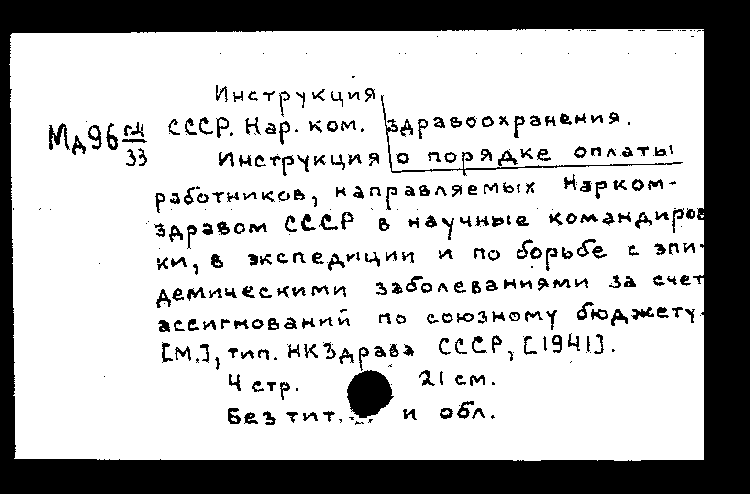 Инструкция
Мд96 гл/33 СССР. Нар. ком. здравоохранения.
Инструкция о порядке оплаты
работников, направляемых Нарком-
здравом СССР в научные командиров
ки, в экспедиции и по борьбе с эпи-
демическими заболеваниями за счет
ассигнований по союзному бюджету.
[М.], тип. НКЗдрава СССР, [1941].
4 стр. 21 см.
Без тит. и обл.